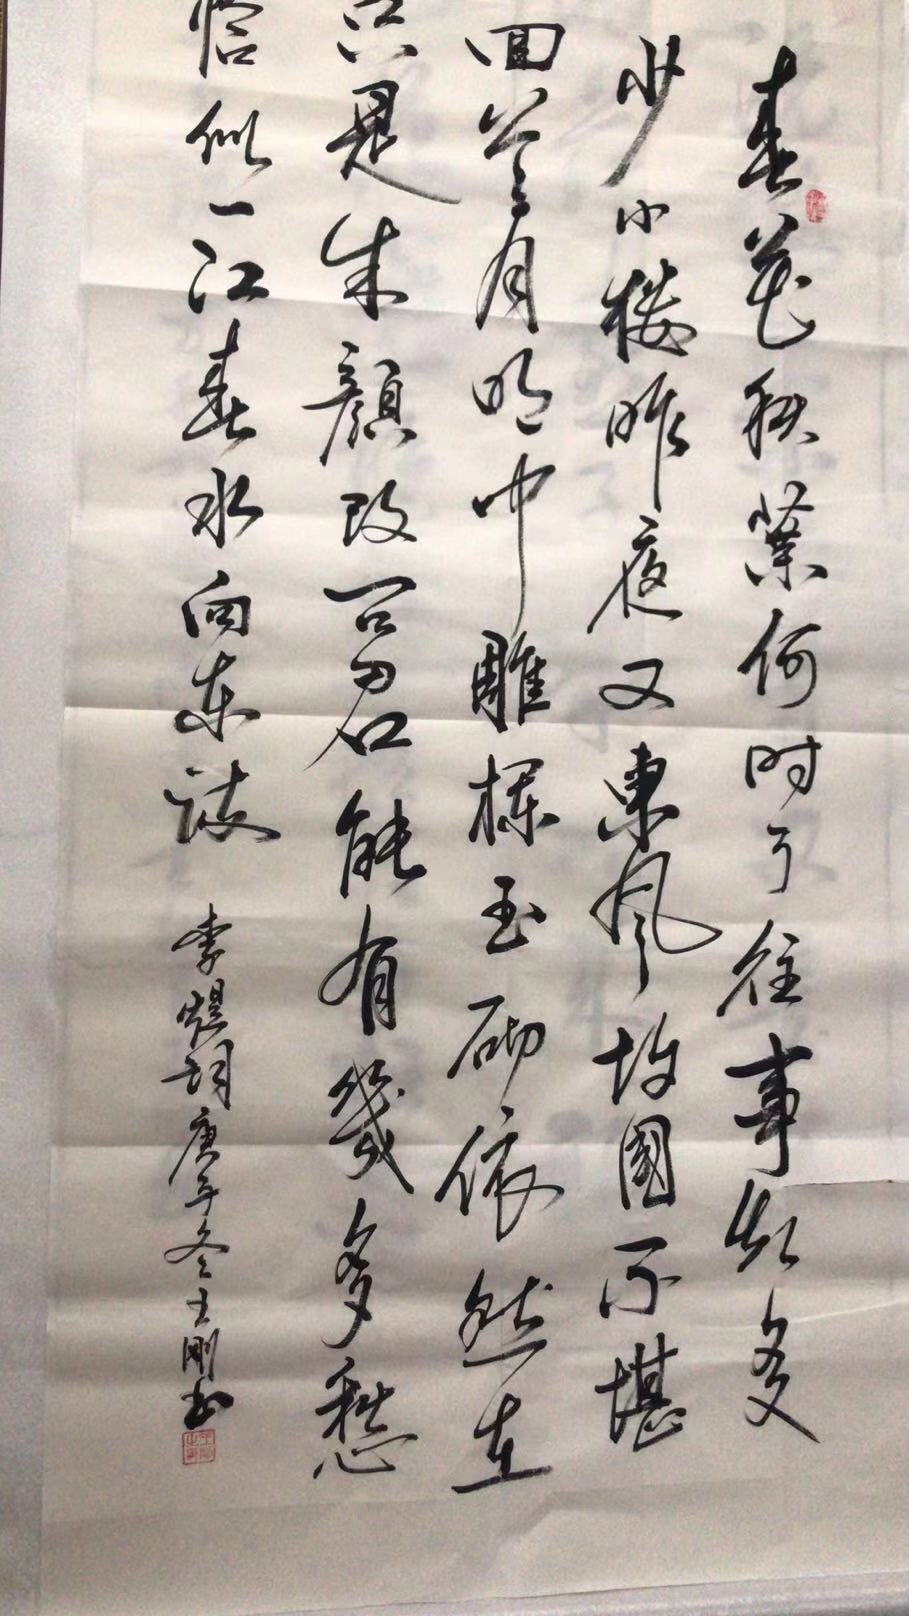 春花秋葉何时了往事知多
少小樓昨夜又東風故國不堪
回首月明中雕欄玉砌依然在
只是朱顏改问君能有幾多愁
恰似一江春水向东流
李煜詞庚子冬王刚书